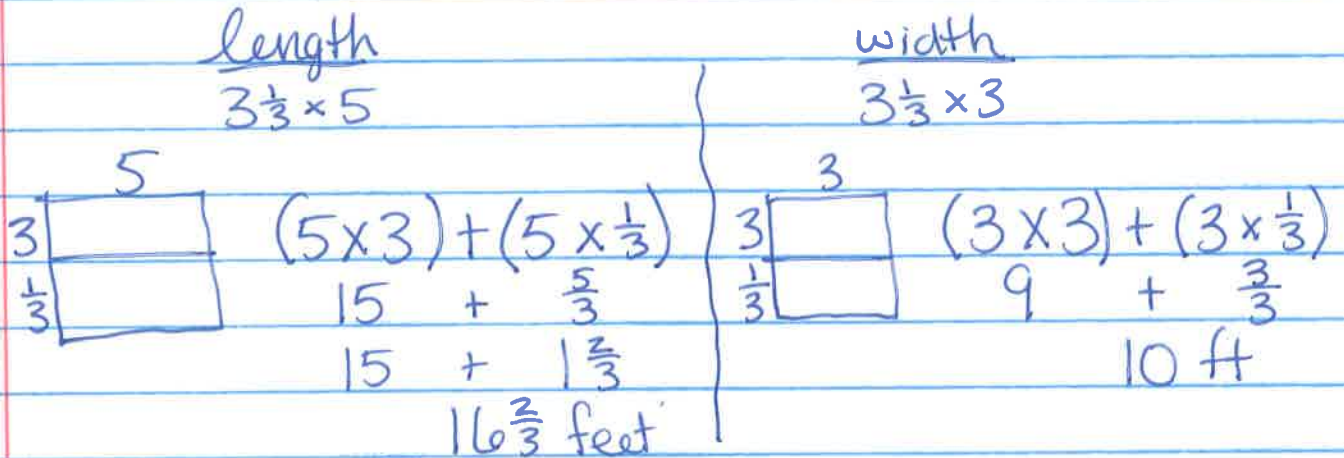 length
3 1/3 × 5
5
3
1/3
(5×3) + (5 × 1/3)
15 + 5/3
15 + 1 2/3
16 2/3 feet
width
3 1/3 × 3
3
3
1/3
(3×3) + (3 × 1/3)
9 + 3/3
10 ft